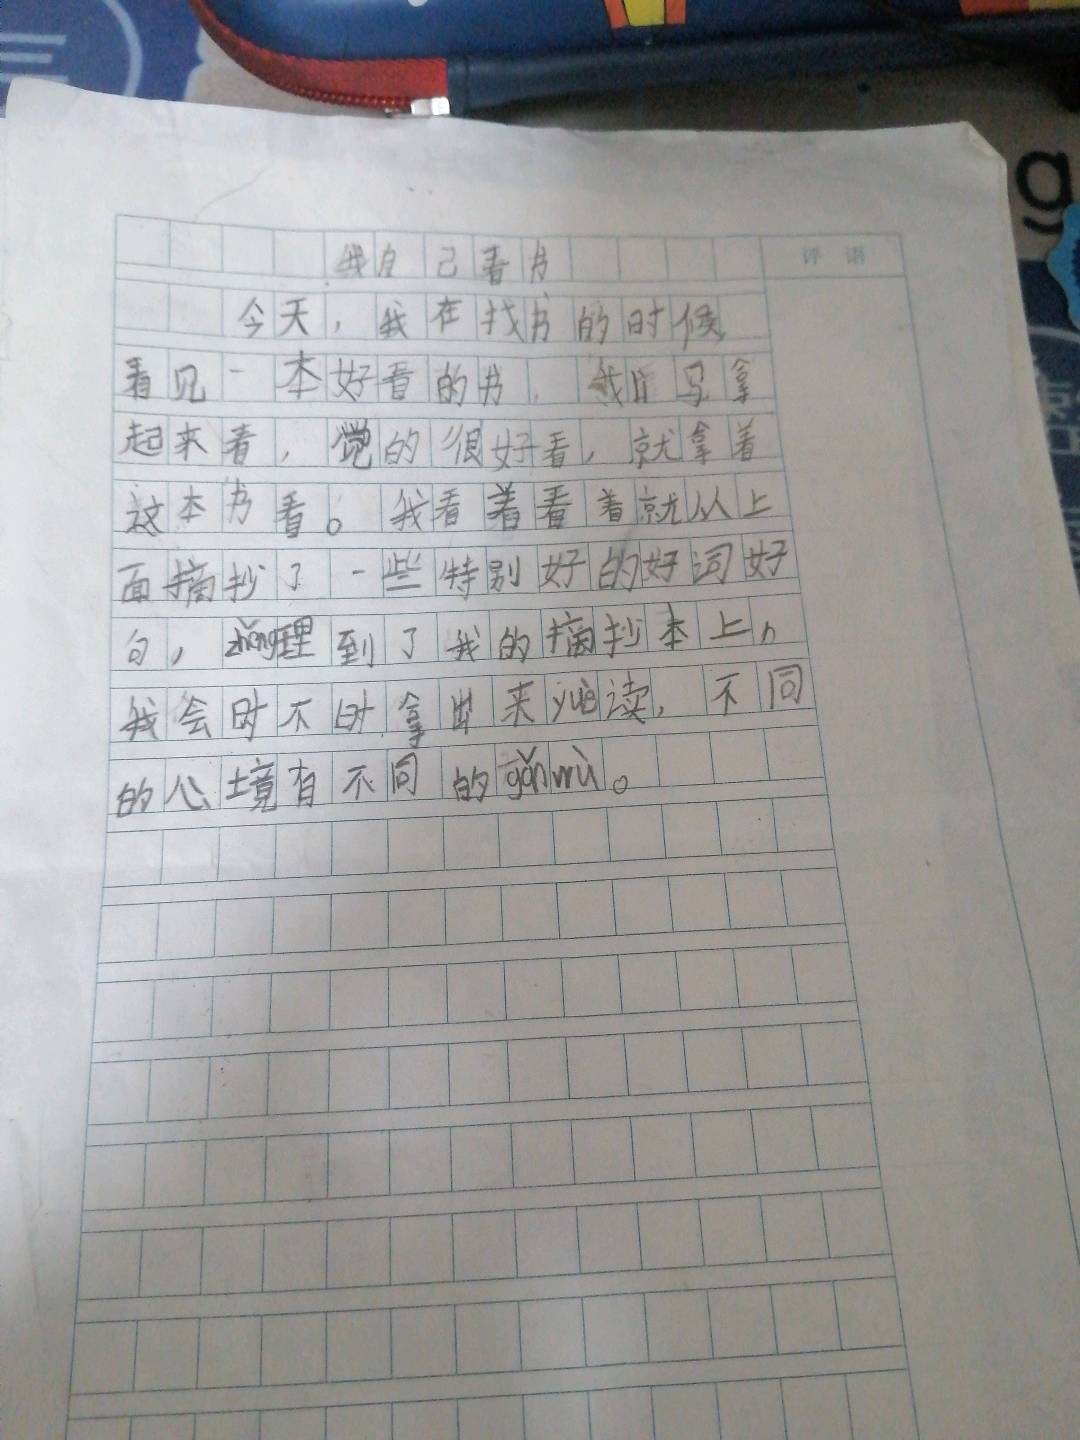 我自己看书
评语
今天，我在找书的时候
看见一本好看的书，我马拿
起来看，觉的很好看，就拿着
这本书看。我看着看着就从上
面摘抄了一些特别好的好词好
句，zhěng理到了我的摘抄本上，
我会时不时拿出来yuè读，不同
的心境有不同的gǎnwù。
g